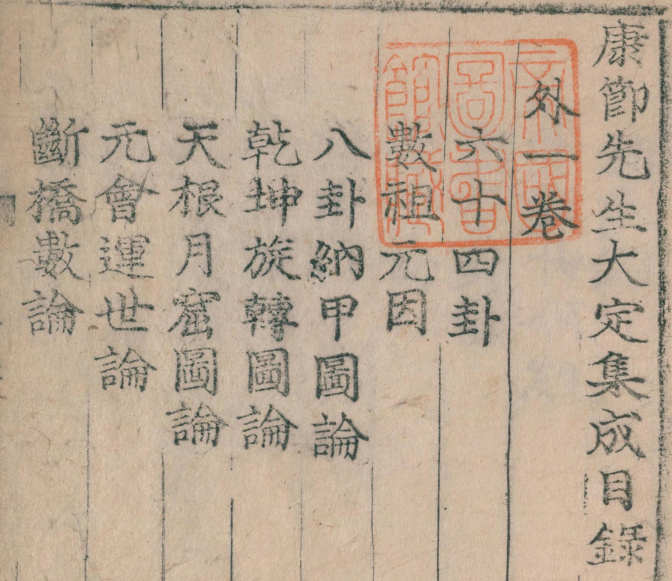 康節先生大定集成目錄
外一卷
六十四卦
數祖元因
八卦納甲圖論
乾坤旋轉圖論
天根月窟圖論
元會運世論
斷橋數論